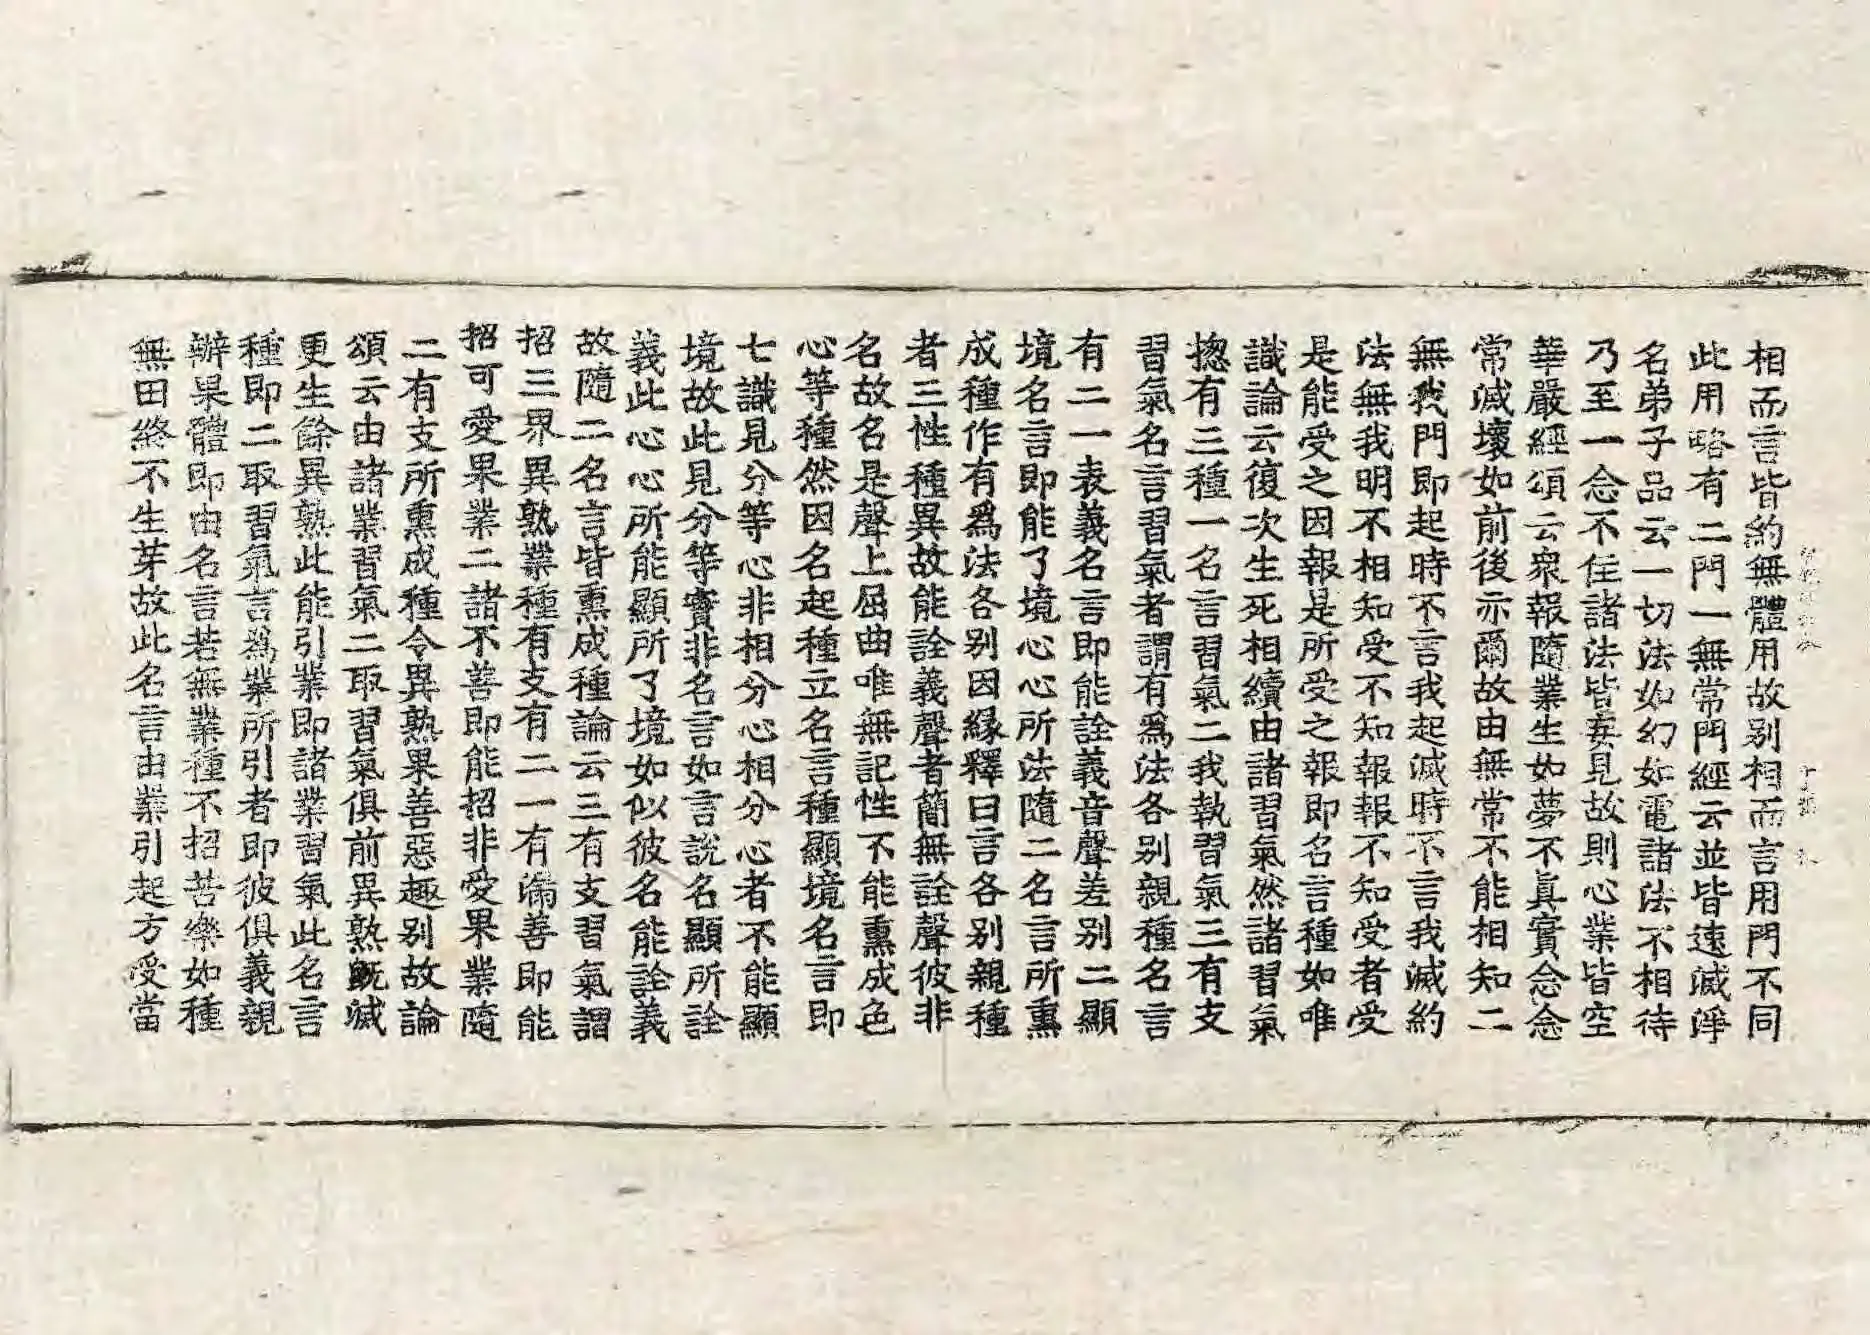 相而言皆約無體用故別相而言用門不同
此用略有二門一無常門經云並皆速滅淨
名弟子品云一切法如幻如電諸法不相待
乃至一念不住諸法皆妄見故則心業皆空
華嚴經頌云衆報隨業生如夢不真實念念
常滅壞如前後亦爾故由無常不能相知二
無我門即起時不言我起滅時不言我滅約
法無我明不相知受不知報報不知受者受
是能受之因報是所受之報即名言種如唯
識論云復次生死相續由諸習氣然諸習氣
揔有三種一名言習氣二我執習氣三有支
習氣名言習氣者謂有爲法各別親種名言
有二一表義名言即能詮義音聲差別二顯
境名言即能了境心心所法隨二名言所熏
成種作有爲法各別因緣釋曰言各別親種
者三性種異故能詮義聲者簡無詮聲彼非
名故名是聲上屈曲唯無記性不能熏成色
心等種然因名起種立名言種顯境名言即
七識見分等心非相分心相分心者不能顯
境故此見分等實非名言如言說名顯所詮
義此心心所能顯所了境如似彼名能詮義
故隨二名言皆熏成種論云三有支習氣謂
招三界異熟業種有支有二一有漏善即能
招可愛果業二諸不善即能招非愛果業隨
二有支所熏成種令異熟果善惡趣別故論
頌云由諸業習氣二取習氣俱前異熟旣滅
更生餘異熟此能引業即諸業習氣此名言
種即二取習氣言爲業所引者即彼俱義親
辦果體即由名言若無業種不招苦樂如種
無田終不生芽故此名言由業引起方受當